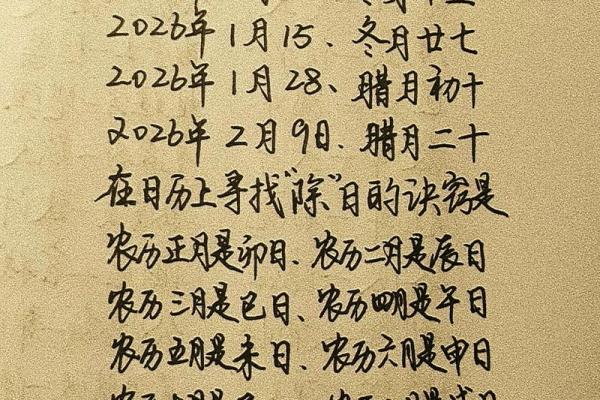 2026年1月15、冬月廿七
2026年1月28、腊月初十
2026年2月9日、腊月二十
在日历上寻找"除"日的诀窍是
农历正月是卯日、农历二月是辰日
农历三月是巳日、农历四月是午日
农历五月是未日、农历六月是申日